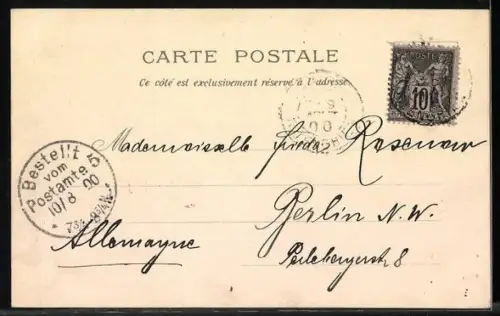 CARTE POSTALE
Ce côté est exclusivement réservé à l'adresse
POSTE
10
00
Bestellt
vom
Postamte 5
10/8 00
7¾-8¾N.
Mademoiselle Frieda Rosenow
Berlin N.W.
Allemagne
Perlebergerstr 8